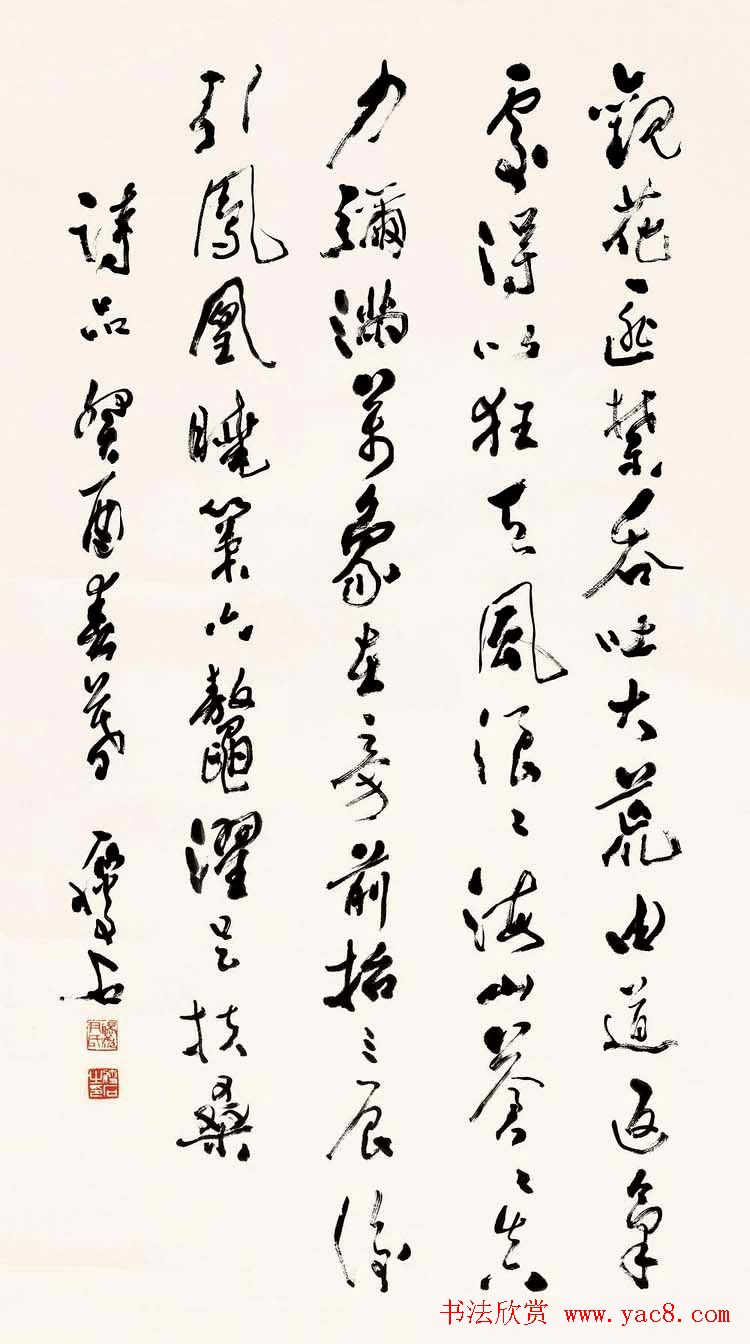 觀花匪禁吞吐大荒由道返氣
處得以狂天風浪々海山蒼々真
力彌滿萬象在旁前招三辰後
引鳳凰曉策六鰲濯足扶桑
詩品癸酉春暮
石
书法欣赏 www.yac8.com